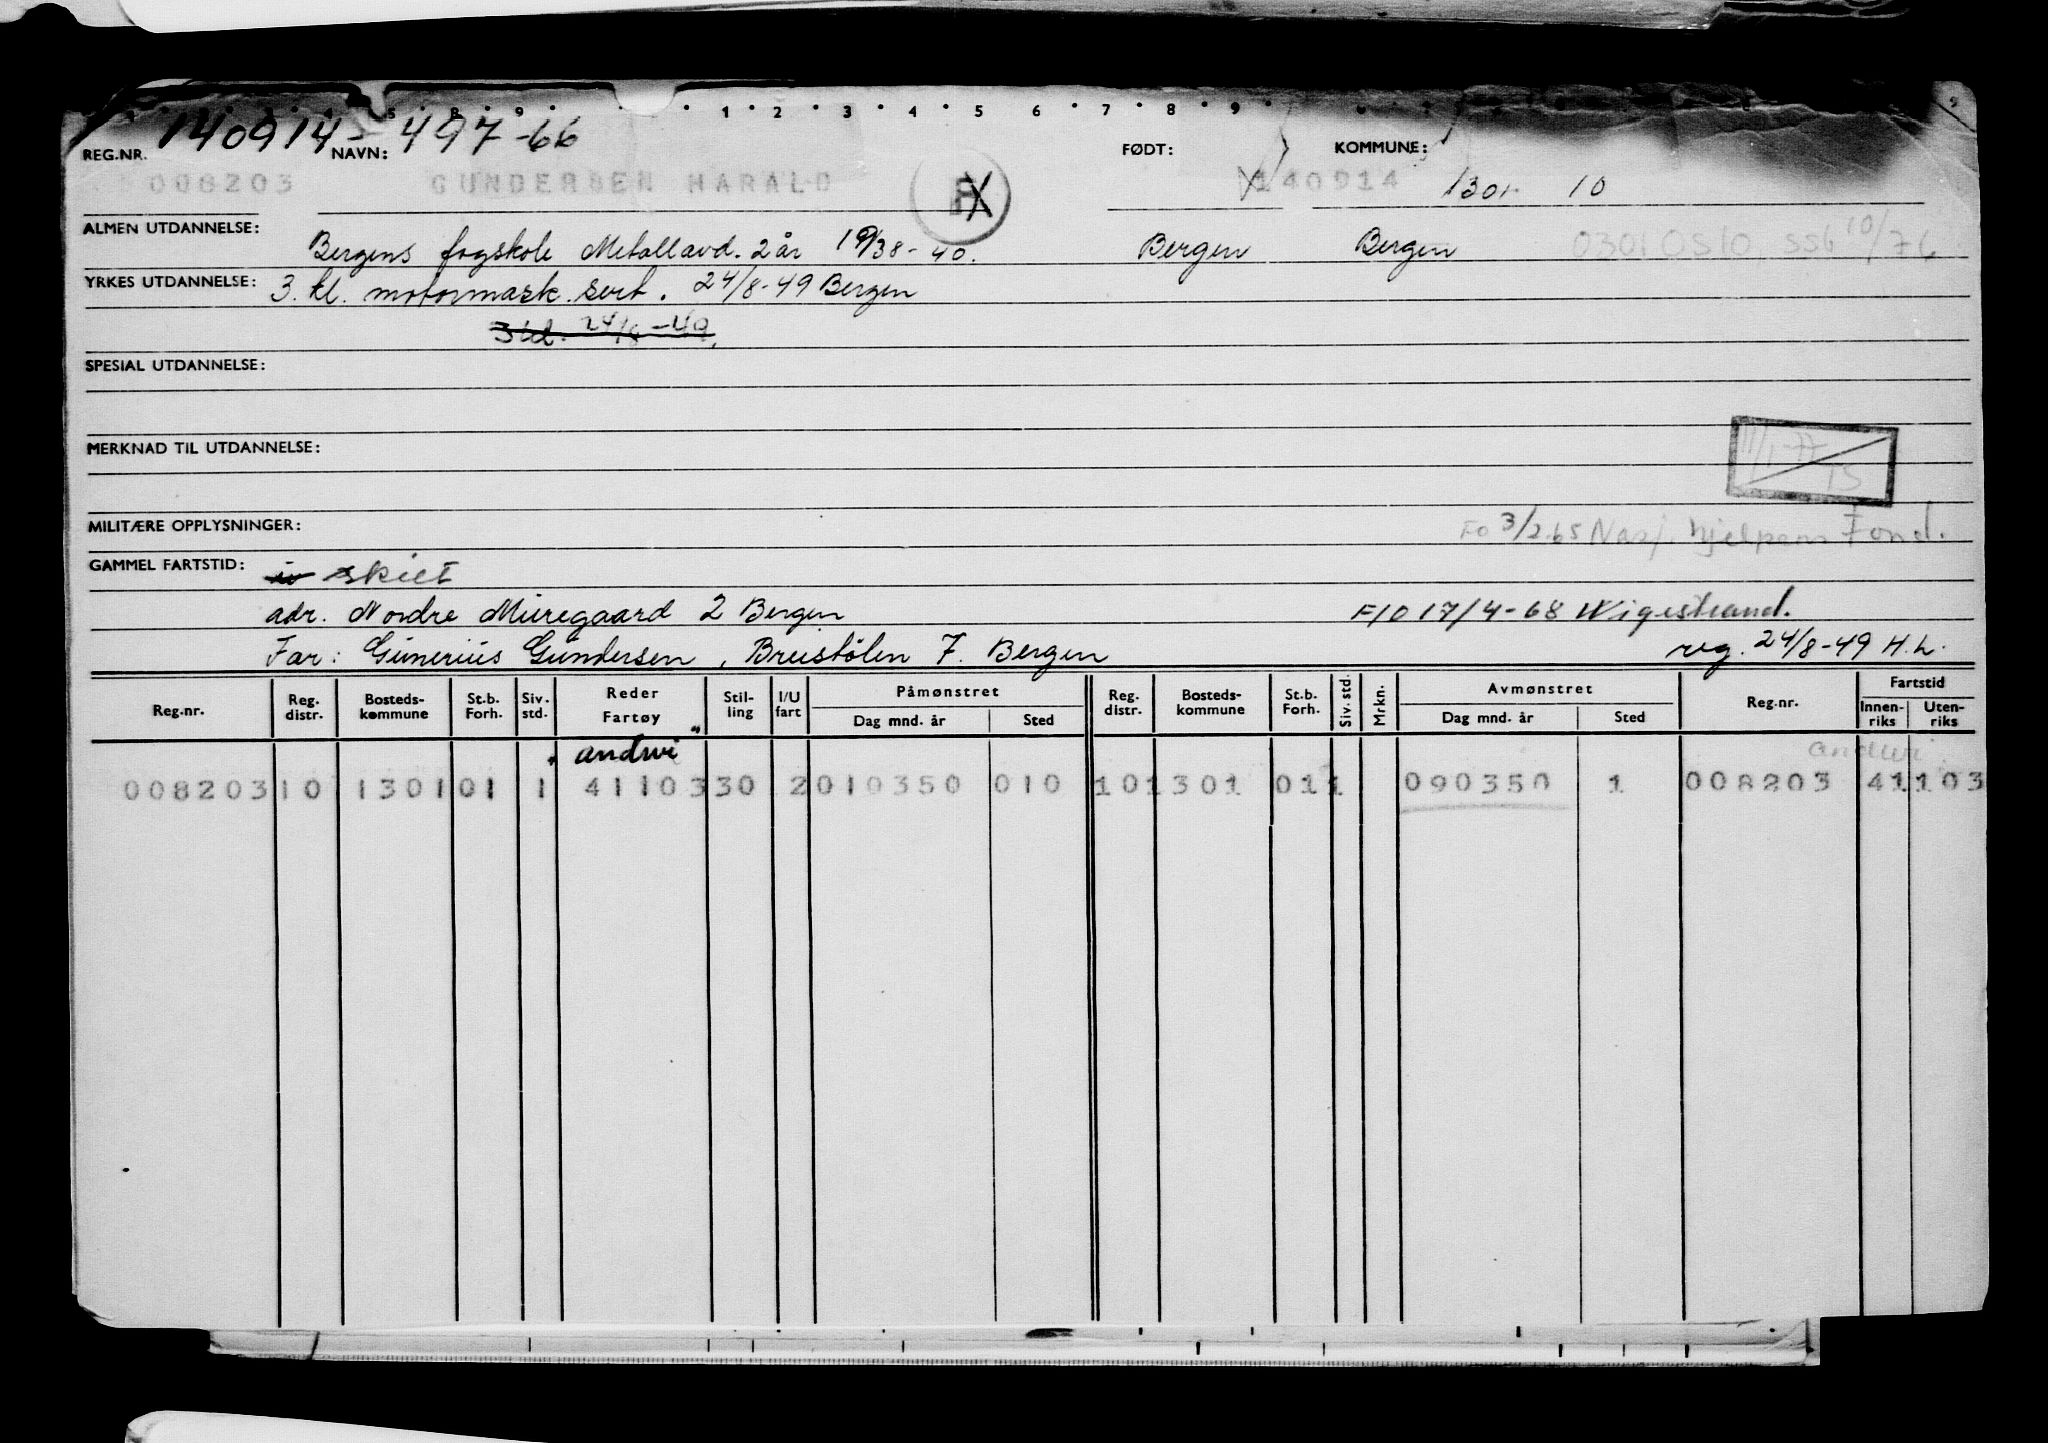 5 8 9 1 2 3 4 5 6 7 8 9
140914 - 497-66
REG.NR. NAVN: FØDT: KOMMUNE:
008203 GUNDERSEN HARALD F X 140914 1301 10
ALMEN UTDANNELSE: Bergens fagskole Metallavd. 2 år 19/38-40. Bergen Bergen 0301 OSLO SSb 10/76
YRKES UTDANNELSE: 3. kl. motormask. sert. 24/8-49 Bergen
3 kl. 24/8-49.
SPESIAL UTDANNELSE:
MERKNAD TIL UTDANNELSE: 11/1-77 TS
MILITÆRE OPPLYSNINGER: Fo 3/2.65 Nasj. hjelpens Fond.
GAMMEL FARTSTID: skilt
adr. Nordre Muregaard 2 Bergen F/O 17/4-68 Wigestrand.
Far: Gunerius Gundersen, Breistølen 7. Bergen reg. 24/8-49 H.L.
Reg.nr. Reg. distr. Bosteds- kommune St.b. Forh. Siv. std. Reder Fartøy Stil- ling I/U fart Påmønstret Dag mnd. år Sted Reg. distr. Bosteds- kommune St.b. Forh. Siv. std. Mrkn. Avmønstret Dag mnd. år Sted Reg.nr. Fartstid Innen- riks Uten- riks
"andwi" andwi
008203 10 1301 01 1 41103 30 2 010350 010 10 1301 01 1 090350 1 008203 41103